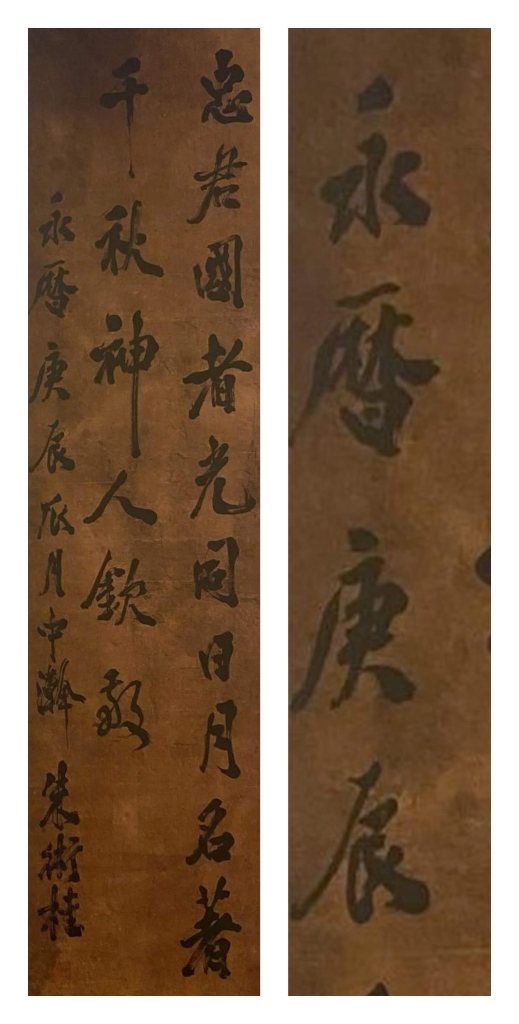 忠君國者光同日月名著
千秋神人欽敬
永曆庚辰辰月中瀚 朱術桂
永曆庚辰